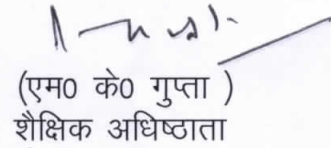 (एम0 के0 गुप्ता )
शैक्षिक अधिष्ठाता